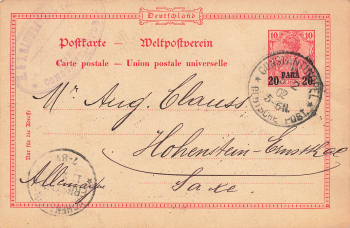 Deutschland
Postkarte - Weltpostverein
Carte postale - Union postale universelle
10 10
20 PARA 20
CONSTANTINOPEL
02
5-6N.
DEUTSCHE POST
Mr. Aug. Clauss
Hohenstein-Ernstthal
Allemagne
Saxe